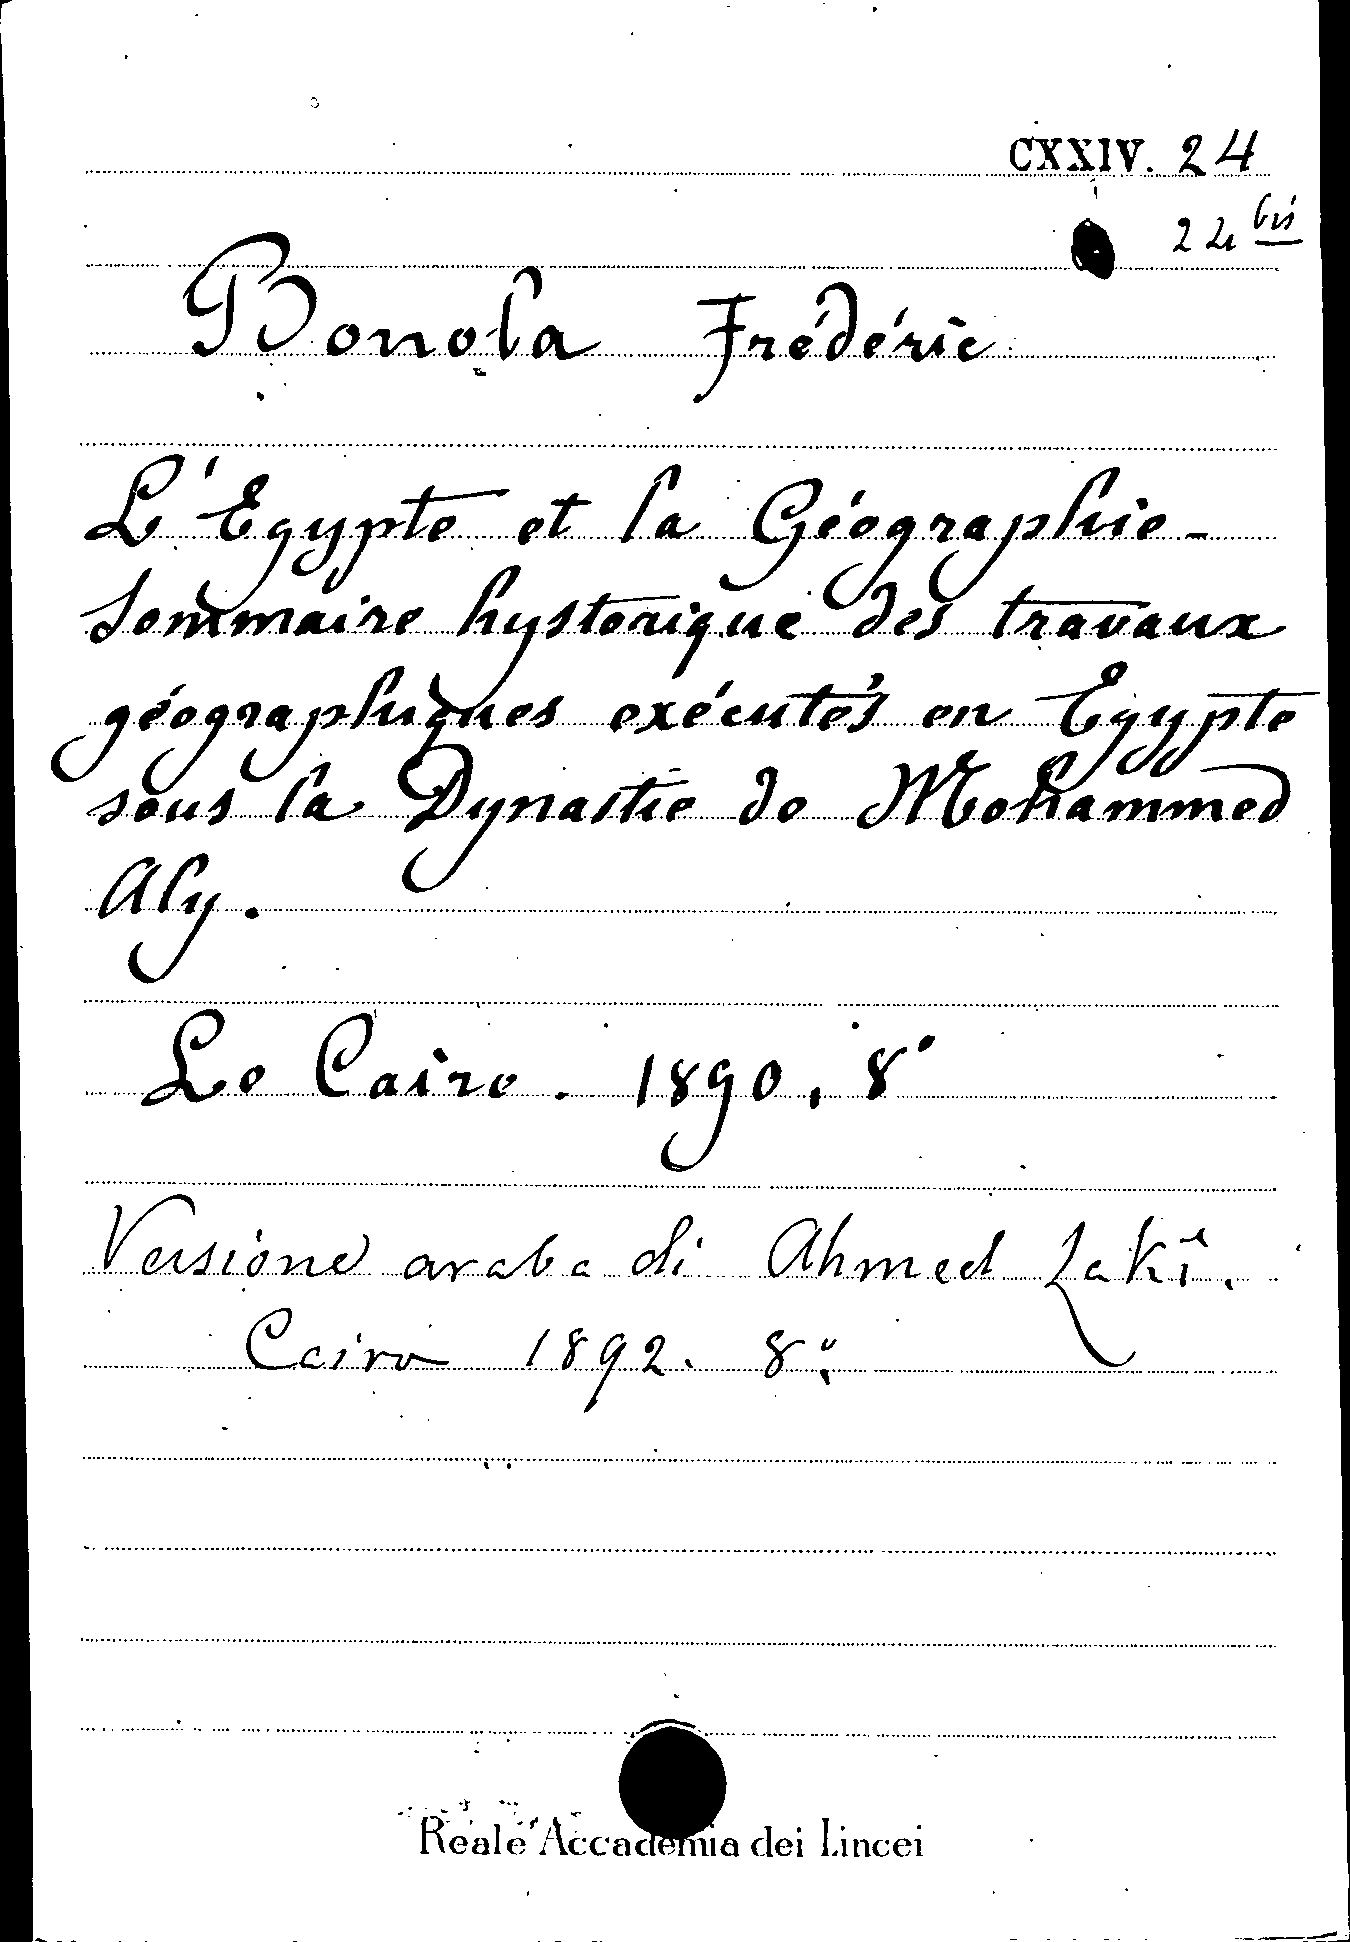 CXXIV. 24
24 bis
Bonola Frédéric
L'Egypte et la Géographie -
Sommaire hystorique des travaux
géographiques exécutés en Egypte
sous la Dynastie de Mohammed
Aly.
Le Caire. 1890, 8°
Versione araba di Ahmed Zakî.
Cairo 1892. 8°.
Reale Accademia dei Lincei